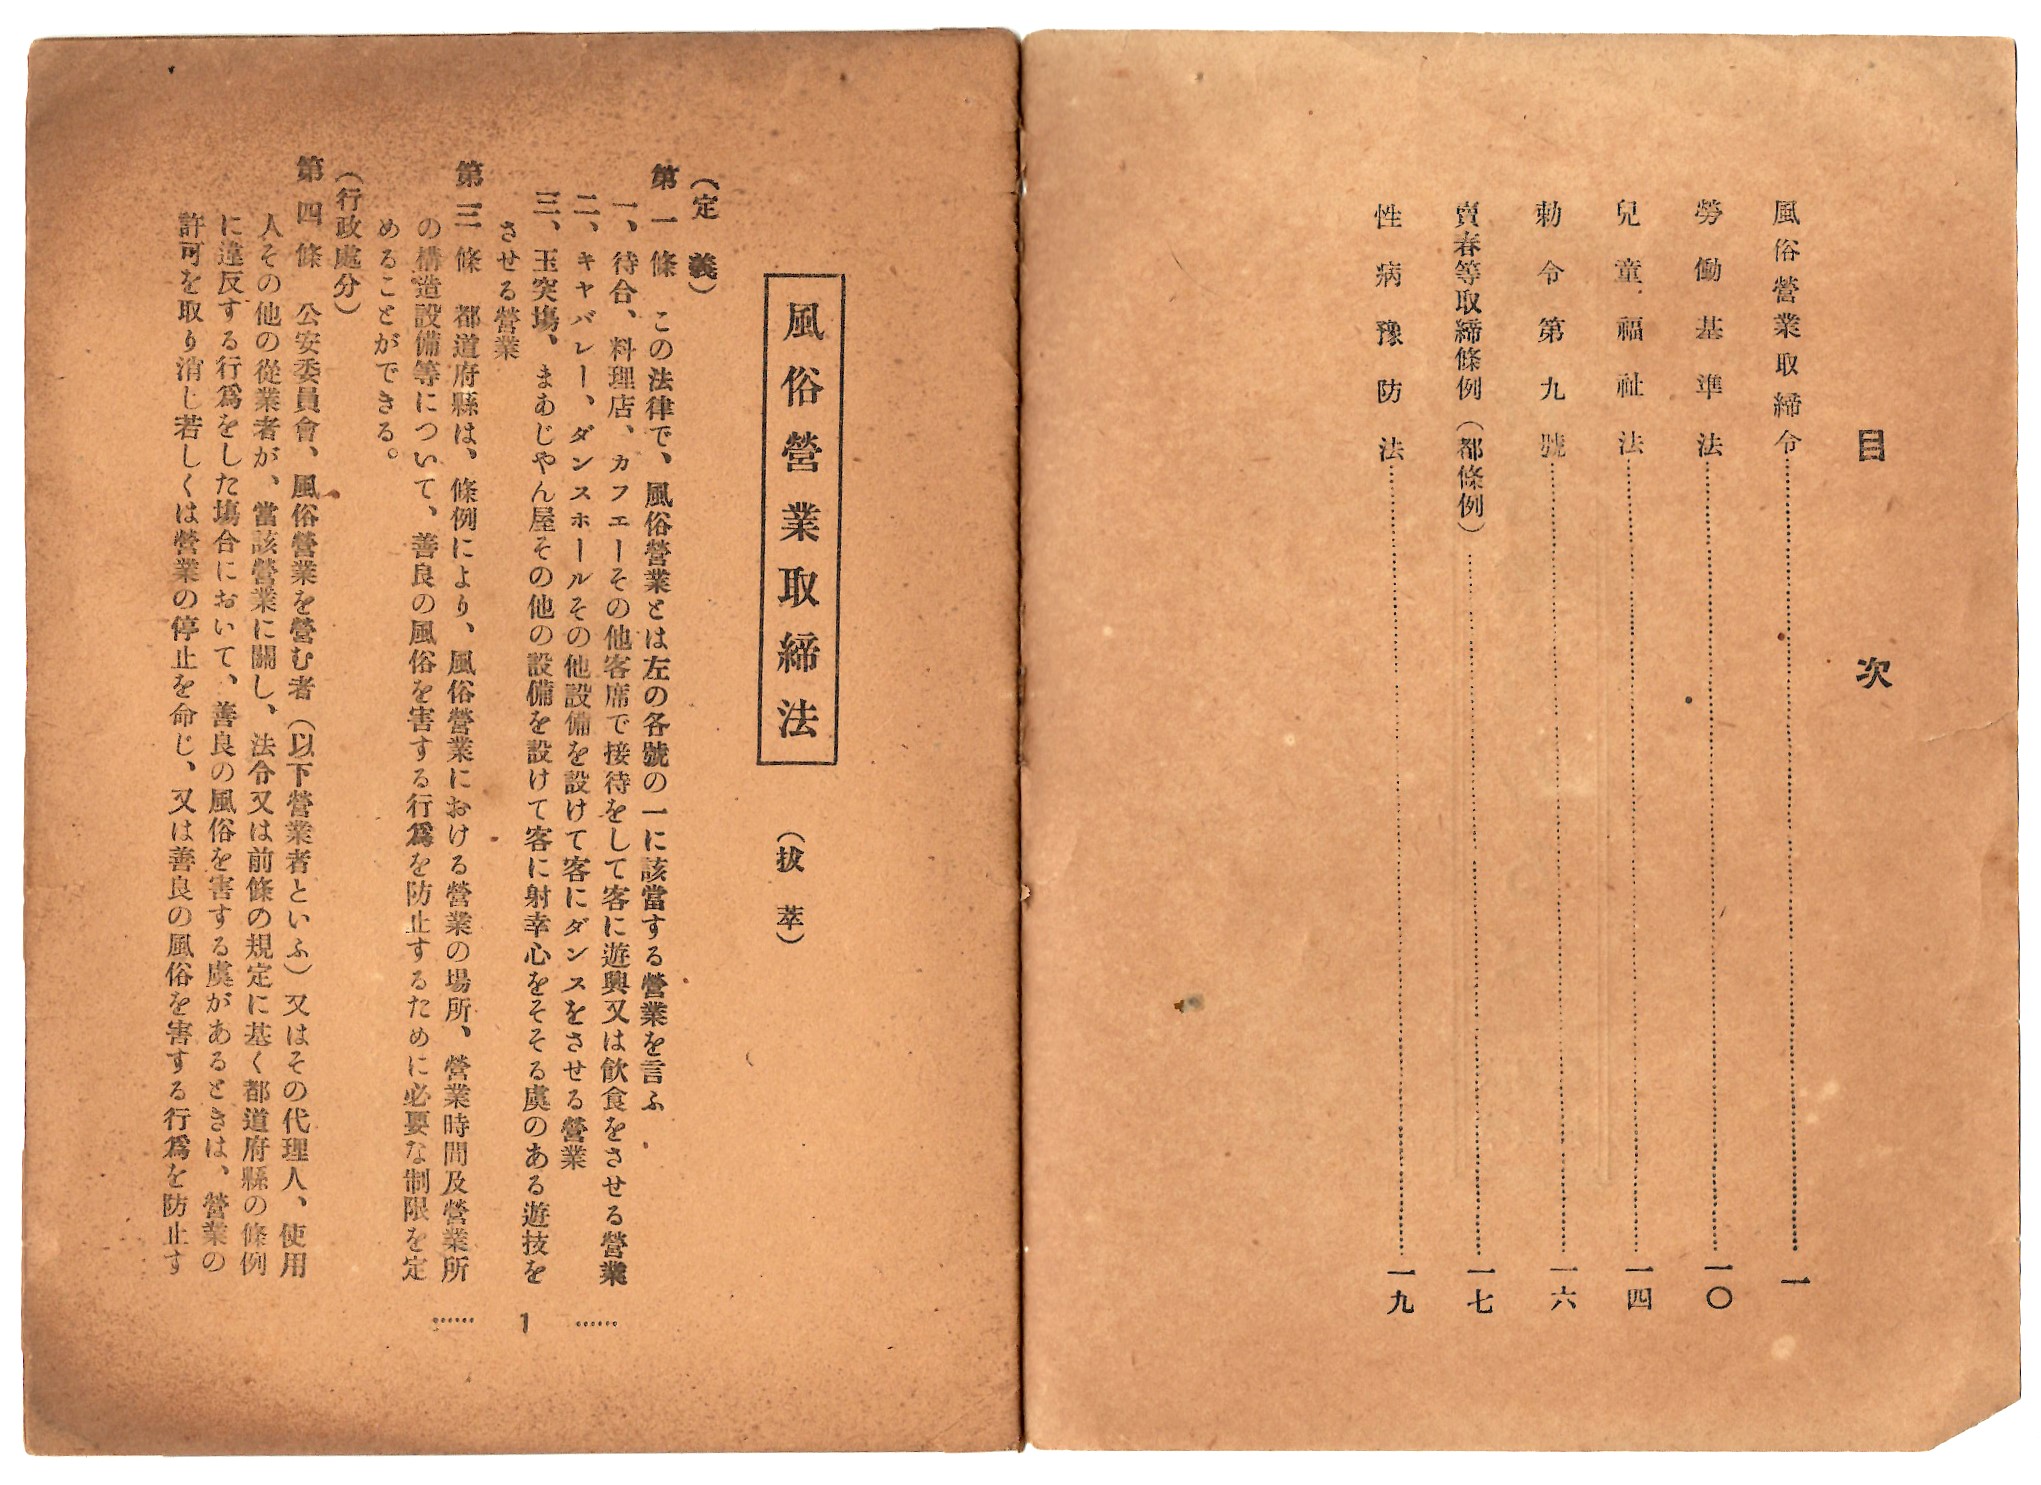 目次
風俗營業取締令……一
勞働基準法……一〇
兒童福祉法……一四
勅令第九號……一六
賣春等取締條例（都條例）……一七
性病豫防法……一九
風俗營業取締法（拔萃）
（定義）
第一條　この法律で、風俗營業とは左の各號の一に該當する營業を言ふ
一、待合、料理店、カフエーその他客席で接待をして客に遊興又は飮食をさせる營業
二、キヤバレー、ダンスホールその他設備を設けて客にダンスをさせる營業
三、玉突場、まあじやん屋その他の設備を設けて客に射幸心をそそる虞のある遊技を
させる營業
第三條　都道府縣は、條例により、風俗營業における營業の場所、營業時間及營業所
の構造設備等について、善良の風俗を害する行爲を防止するために必要な制限を定
めることができる。
（行政處分）
第四條　公安委員會、風俗營業を營む者（以下營業者といふ）又はその代理人、使用
人その他の從業者が、當該營業に關し、法令又は前條の規定に基く都道府縣の條例
に違反する行爲をした塲合において、善良の風俗を害する虞があるときは、營業の
許可を取り消し若しくは營業の停止を命じ、又は善良の風俗を害する行爲を防止す
……1……